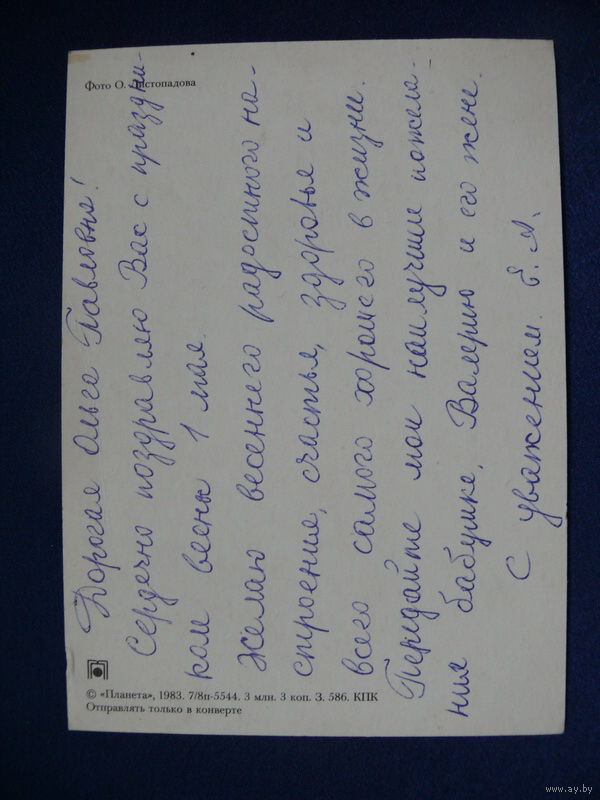 Фото О. Листопадова
Дорогая Ольга Павловна!
Сердечно поздравляю Вас с праздни-
ком весны 1 мая.
Желаю весеннего радостного на-
строения, счастья, здоровья и
всего самого хорошего в жизни.
Передайте мои наилучшие пожела-
ния бабушке, Валерию и его жене.
С уважением. Е. Я.
© «Планета», 1983. 7/8п-5544. 3 млн. 3 коп. З. 586. КПК
Отправлять только в конверте
www.ay.by